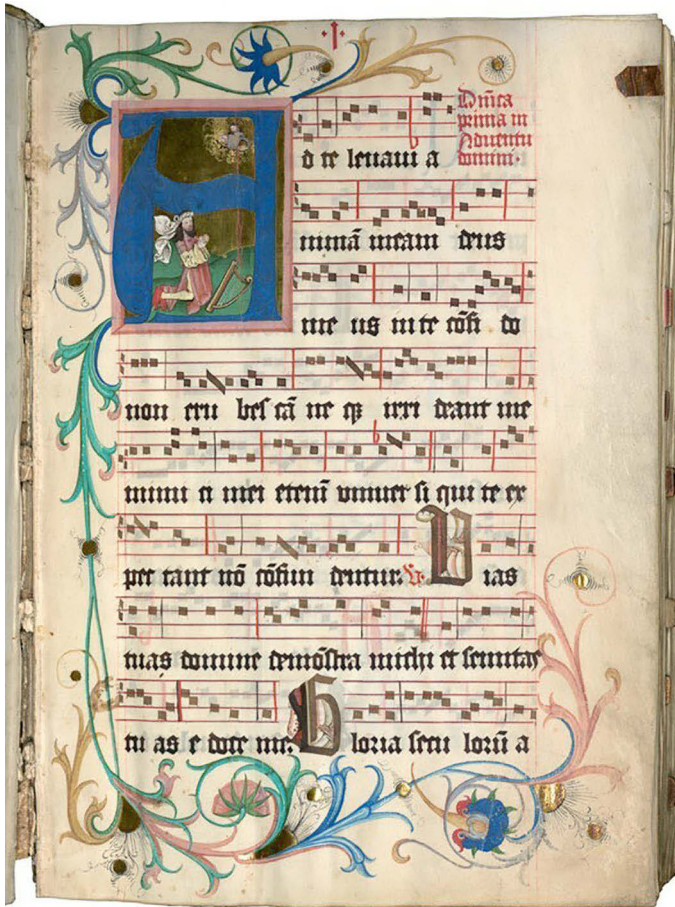 ·I·
Dn̄ica
prima in
Aduentu
domini·
Ad te leuaui a
nimā meam deus
me us in te cōfi do
non eru bes cā ne q̄ irri deant me
inimi ci mei etenī vniuer si qui te ex
pec tant nō cōfun dentur. V̄. Vias
tuas domine demōstra michi et semitas
tu as e doce me. Gloria secu lorū a